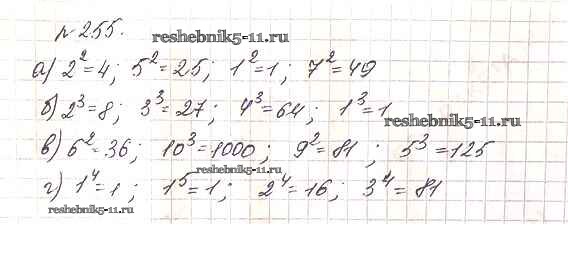 № 255.
reshebnik5-11.ru
а) 2²=4; 5²=25; 1²=1; 7²=49
б) 2³=8; 3³=27; 4³=64; 1³=1
reshebnik5-11.ru
в) 6²=36; 10³=1000; 9²=81; 5³=125
reshebnik5-11.ru
г) 1⁴=1; 1⁵=1; 2⁴=16; 3⁴=81
reshebnik5-11.ru